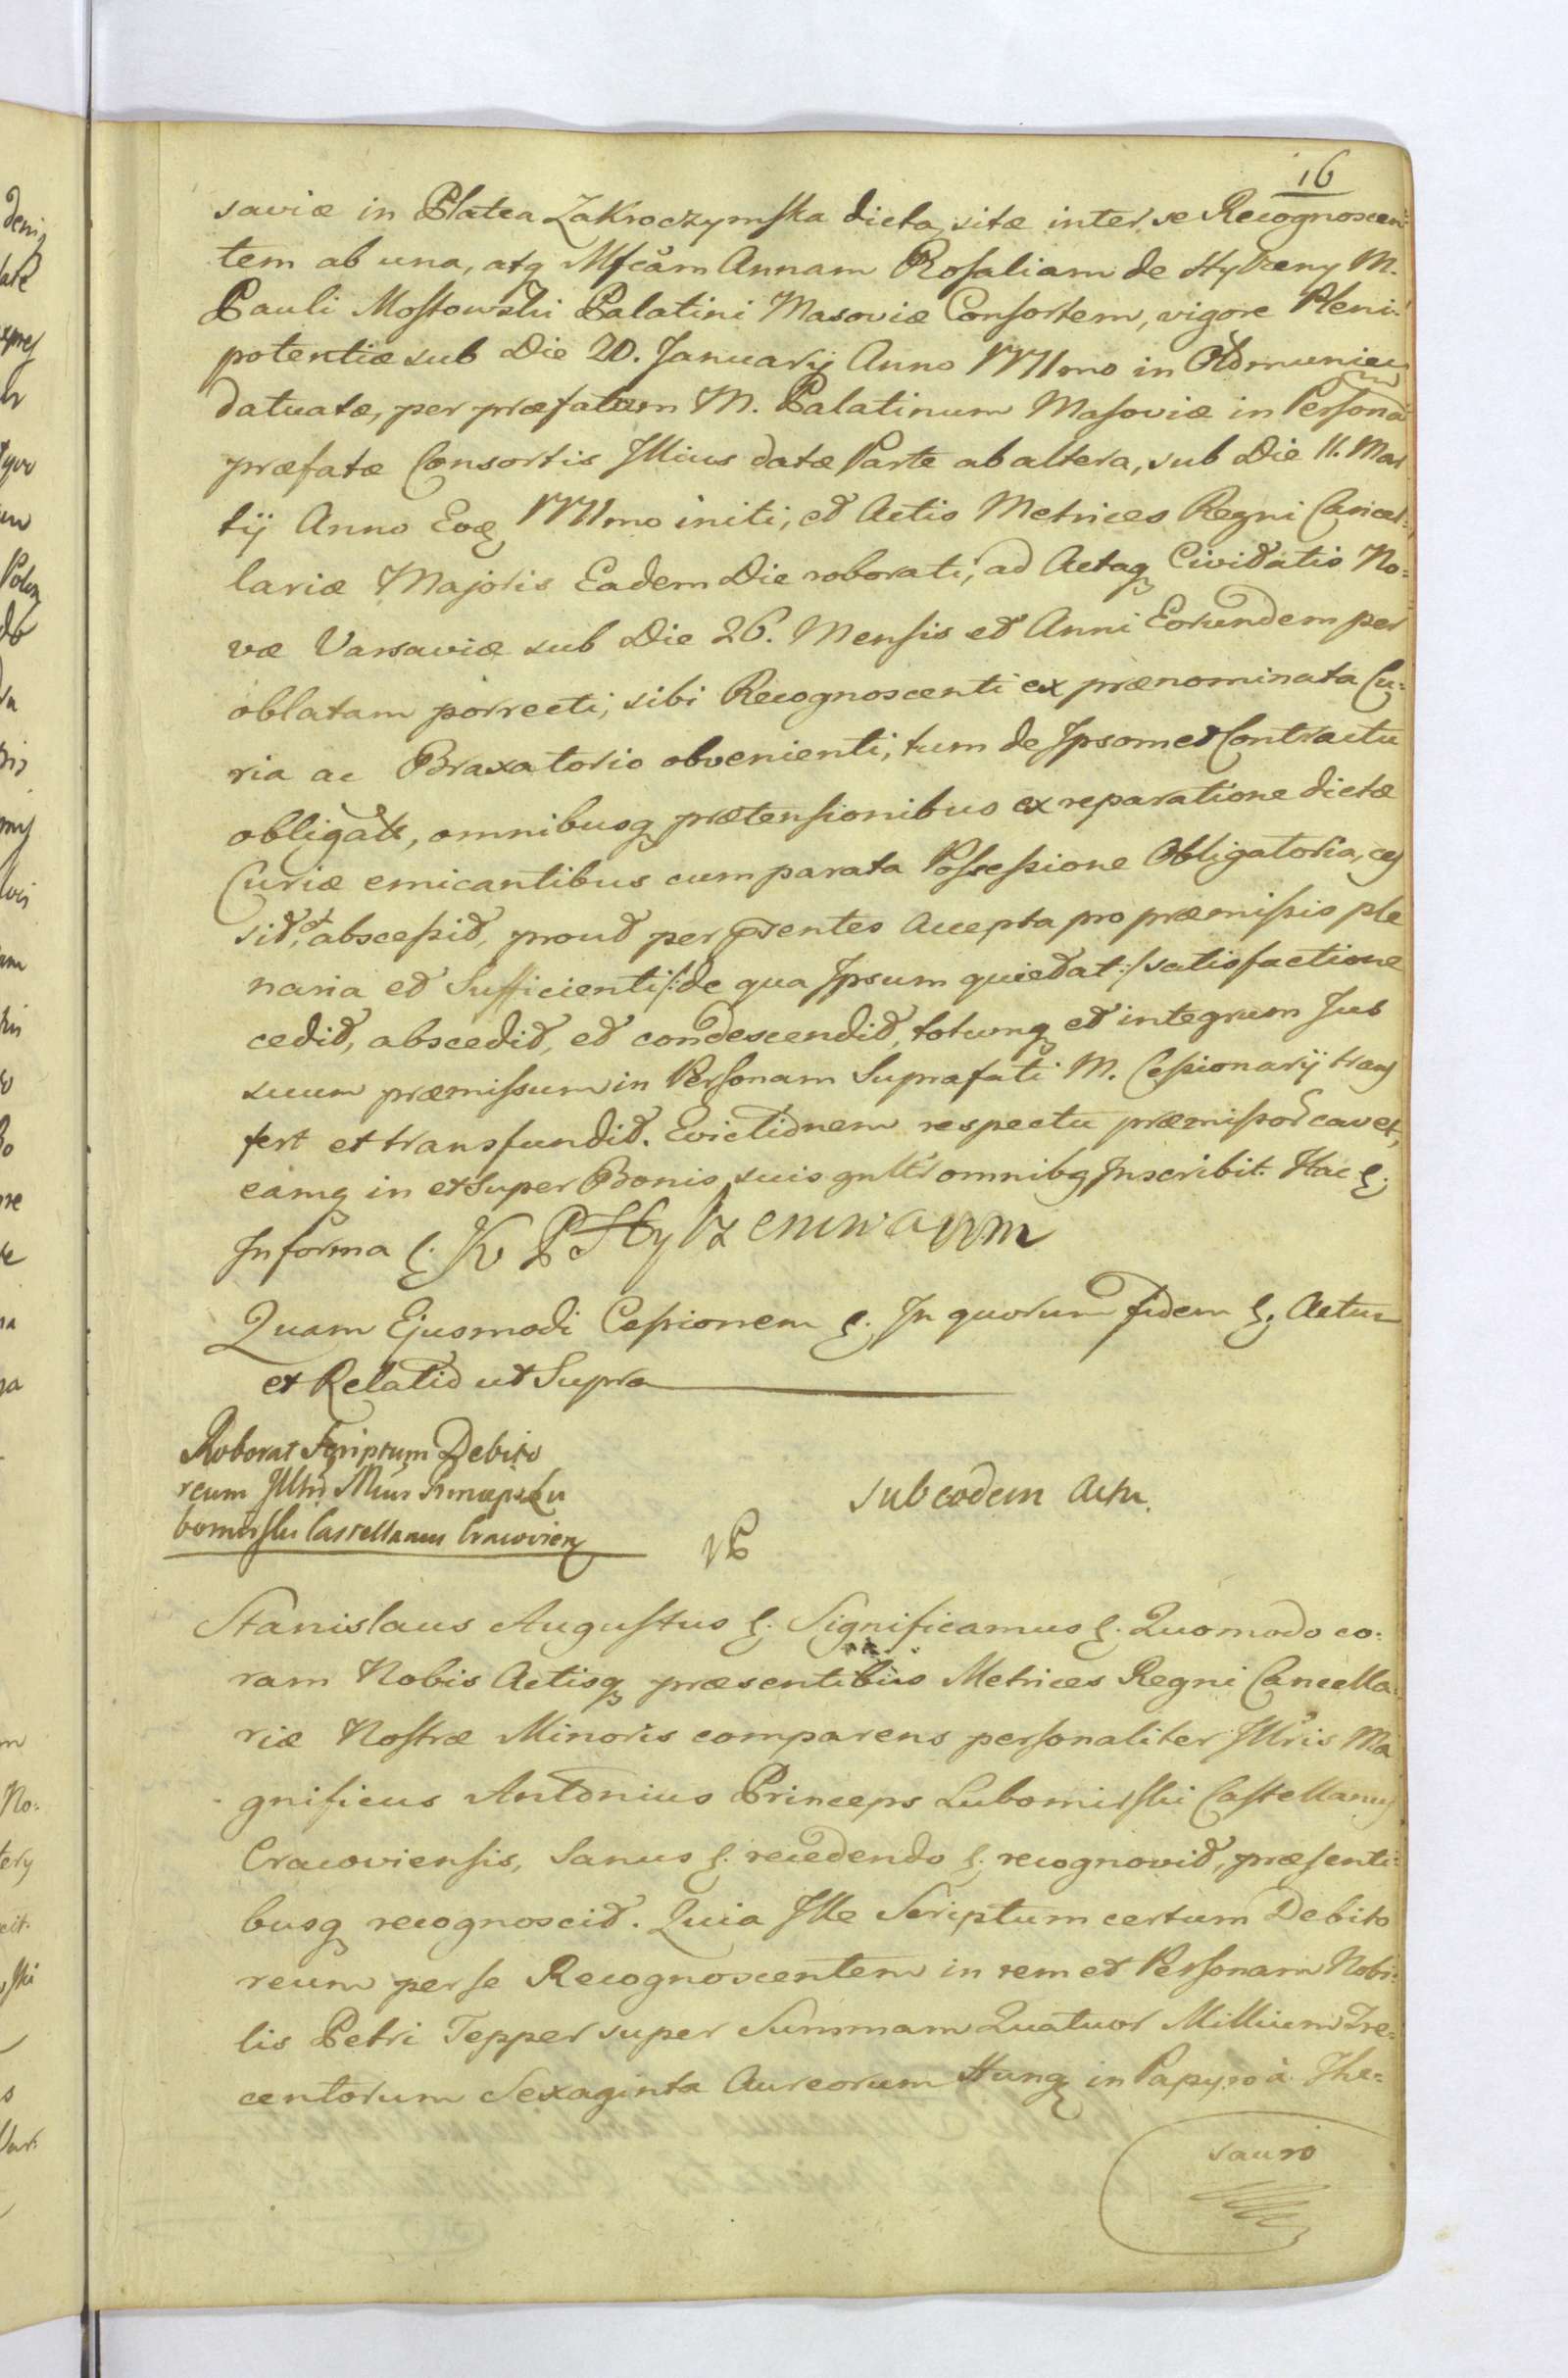 16
saviæ in Platea Zakroczymska dicta, sitæ inter se Recognoscen=
tem ab una, atq Mfcam Annam Rosaliam de Hylzeny M.
Pauli Mostowski Palatini Masoviæ Consortem, vigore Pleni=
potentiæ sub Die 20. Januarij Anno 1771mo in
datuatæ, per præfatum M. Palatinum Masoviæ in Persona
præfatæ Consortis Illius datæ Parte ab altera, sub Die 11. Mar
tij Anno Eoq 1771mo initi, et Actis Metrices Regni Cancel=
lariæ Majoris Eadem Die roborati, ad Actaq Civitatis No=
væ Varsaviæ sub Die 26. Mensis et Anni Eorundem per
oblatam porrecti, sibi Recognoscenti ex prænominata Cu=
ria ac Braxatorio obvenienti, tum de Ipsomet Contractu
obligat, omnibusq prætensionibus ex reparatione dictæ
Curiæ emicantibus cum parata Possessione Obligatoria, ces
sit, et abscessit, prout per prsentes Accepta pro præmissis ple
naria et Sufficienti /:de qua Ipsum quietat:/ satisfactione
cedit, abscedit, et condescendit, totumq et integrum Jus
suum præmissum in Personam Suprafati M. Cessionarij trans
fert et transfundit. Evictionem respectu præmissor cavet,
eamq in et super Bonis suis gnltr omnibq Inscribit. Hac &.
In forma &. K P Hylzenn
Quam Ejusmodi Cessionem &. In quorum fidem &. Actum
et Relatio ut Supra
Roborat Scriptum Debito
reum Illtris Mcus Princeps Lu
bomirski Castellanus Cracovien
Sub eodem Actu.
Stanislaus Augustus &. Significamus &. Quomodo co=
ram Nobis Actisq præsentibus Metrices Regni Cancella=
riæ Nostræ Minoris comparens personaliter Illtris Ma
gnificus Antonius Princeps Lubomirski Castellanus
Cracoviensis, Sanus &. recedendo &. recognovit, præsenti=
busq recognoscit. Quia Ille Scriptum certum Debito
reum per se Recognoscentem in rem et Personam Nobi=
lis Petri Tepper super Summam Quatuor Millium Tre=
centorum Sexaginta Aureorum Hung in Papyro à The=
sauro